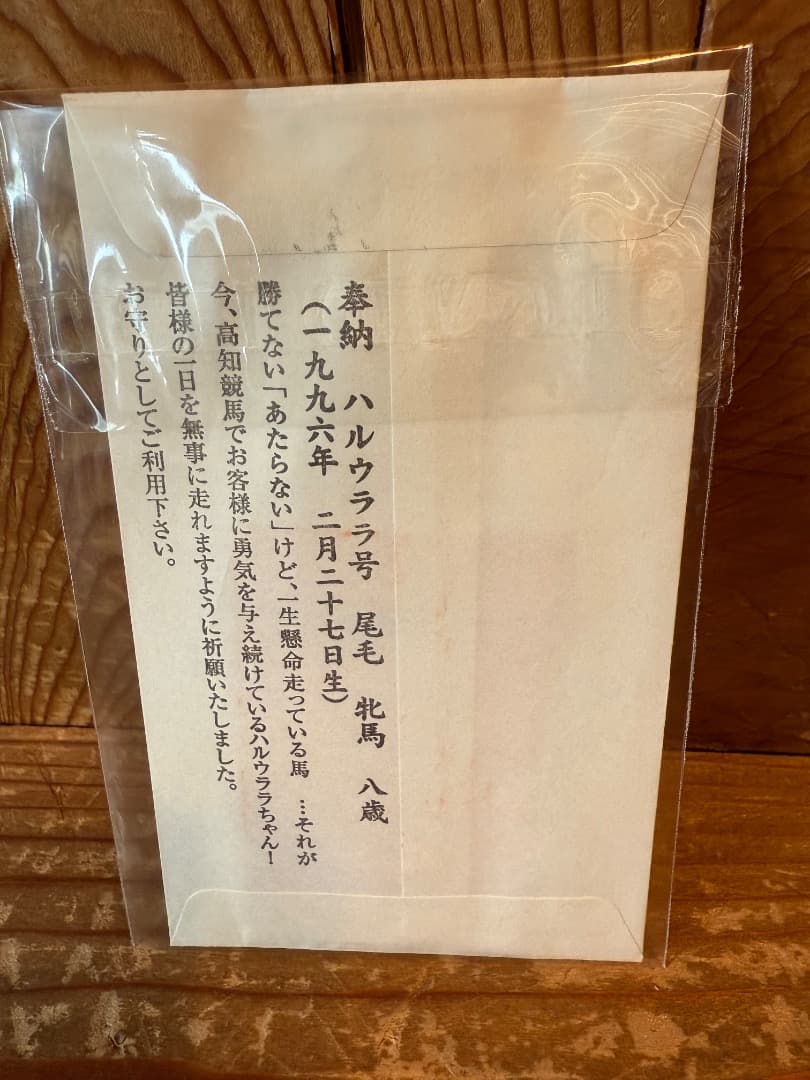 奉納　ハルウララ号　尾毛　牝馬　八歳
（一九九六年　二月二十七日生）
勝てない「あたらない」けど、一生懸命走っている馬　…それが
今、高知競馬でお客様に勇気を与え続けているハルウララちゃん！
皆様の一日を無事に走れますように祈願いたしました。
お守りとしてご利用下さい。